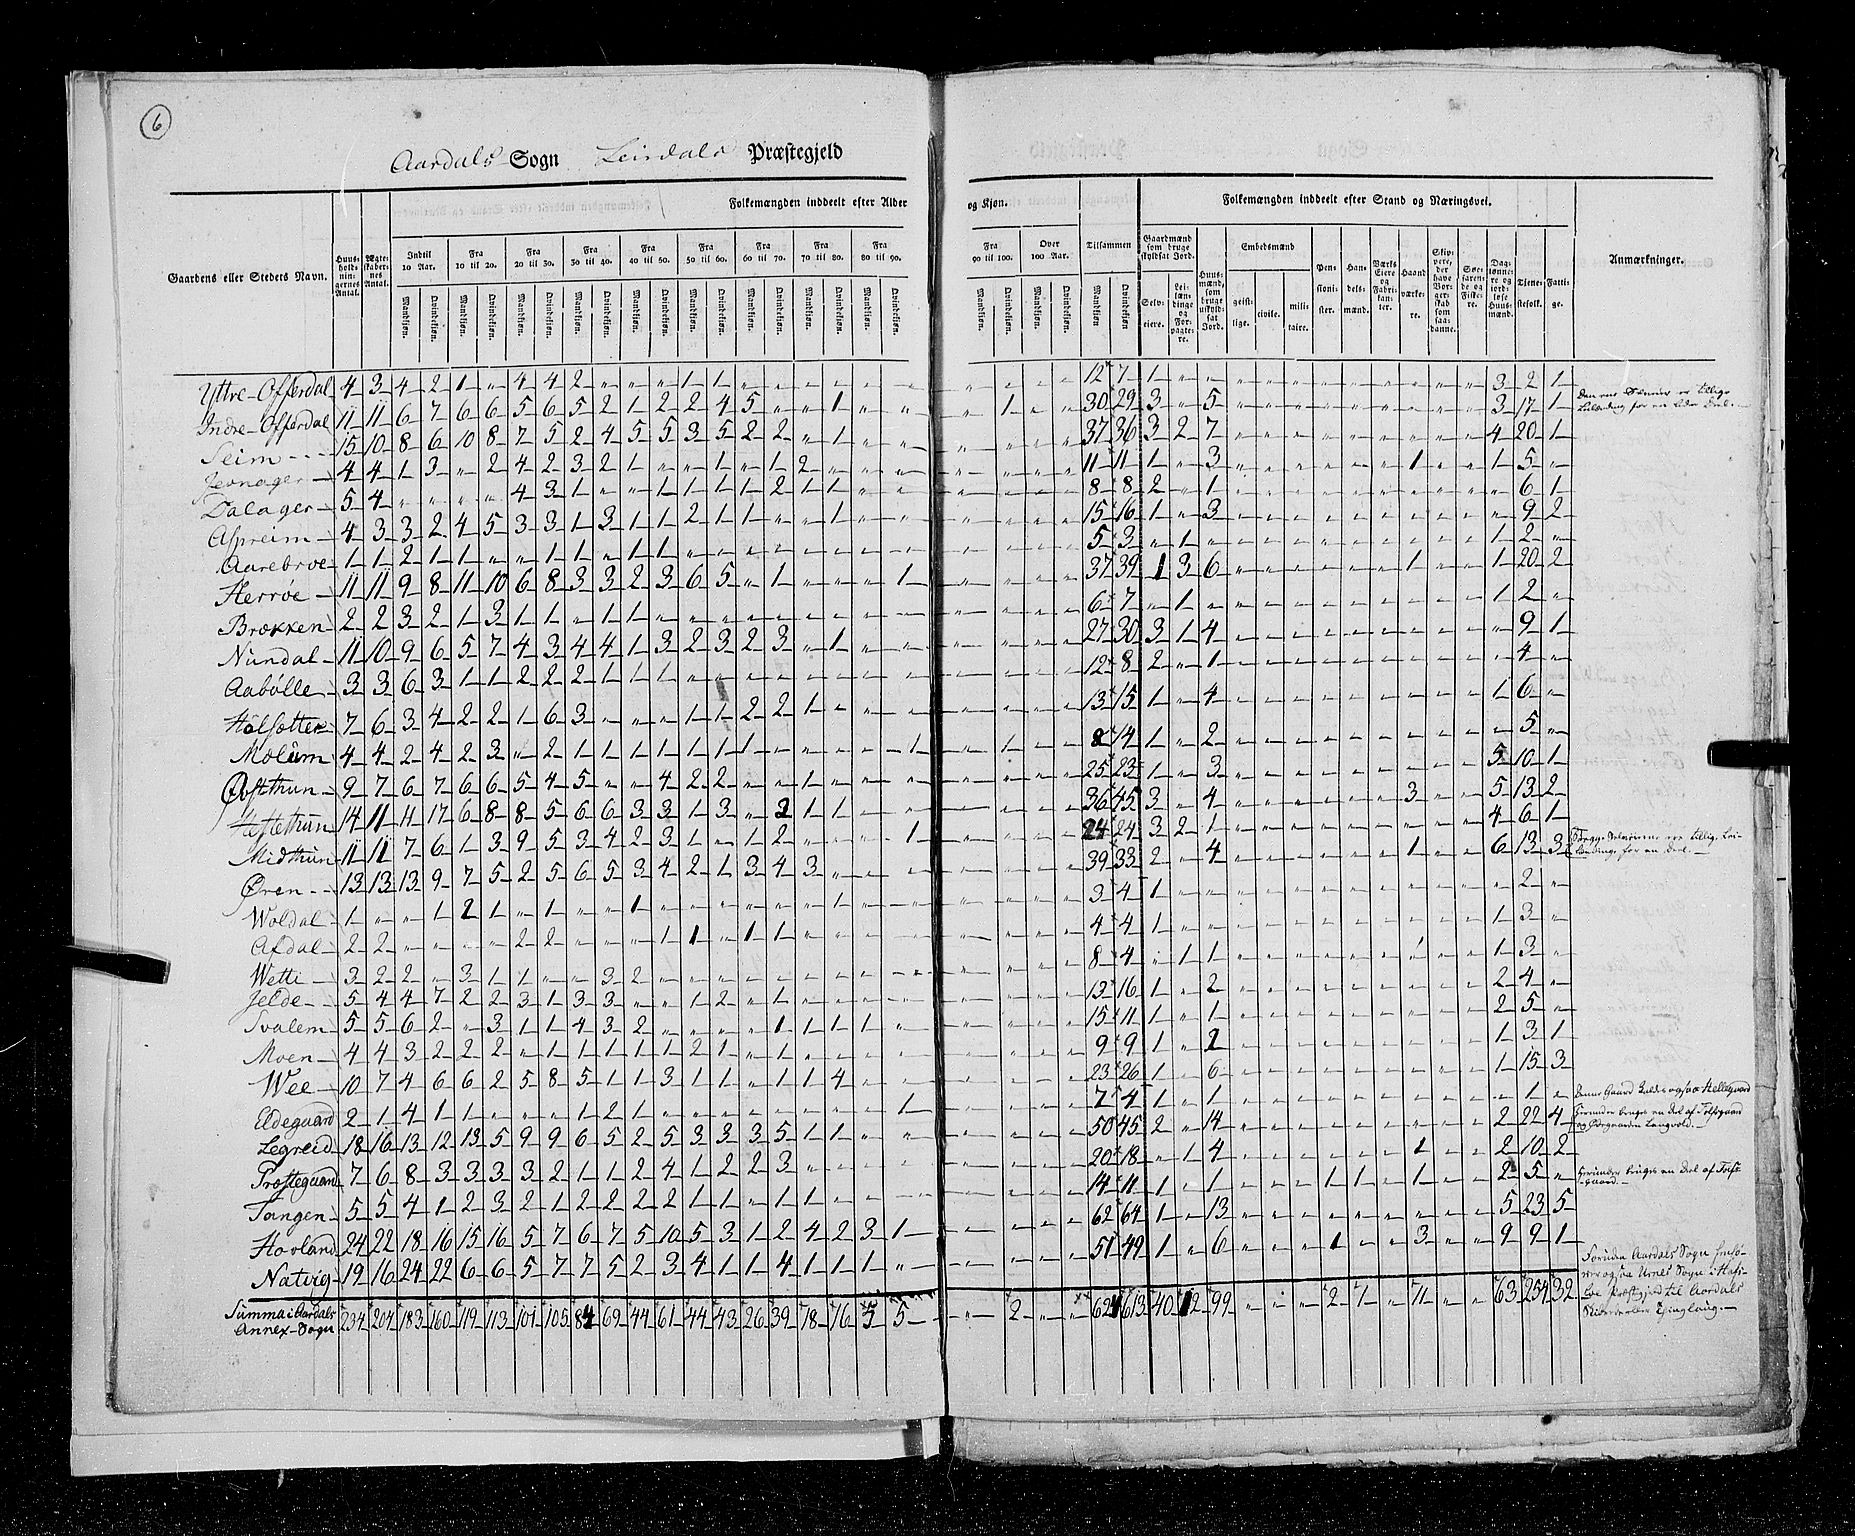 6
Aardals Sogn Leirdals Præstegjeld
Folkemængden inddeelt efter Alder og Kjøn. Folkemængden inddeelt efter Stand og Næringsvei.
Gaardens eller Stedets Navn. Huusholdningernes Antal. Ægteskabernes Antal. Indtil 10 Aar. Fra 10 til 20. Fra 20 til 30. Fra 30 til 40. Fra 40 til 50. Fra 50 til 60. Fra 60 til 70. Fra 70 til 80. Fra 80 til 90. Fra 90 til 100. Over 100 Aar. Tilsammen Anmærkninger.
Mandkjøn. Qvindekjøn.
Gaardmænd som bruge skyldsat Jord. Selveiere. Leilændinge og Forpagtere. Huusmænd, som bruge uskyldsat Jord. Embedsmænd geistlige. civile. militaire. Pensionister. Handelsmænd. Værks Eiere og Fabrikanter. Haandværkere. Skippere, der have Borgerskab som saadanne. Søefarende og Fiskere. Daglønnere og jordløse Huusmænd. Tjenestefolk. Fattige.
Yttre-Offerdal 4 3 4 2 1 „ 4 4 2 „ „ „ 1 1 12 7 1 3 2 1
Indre-Offerdal 11 11 6 7 6 6 5 6 5 2 1 2 2 4 5 „ „ 1 1 30 29 3 „ 5 3 17 1
Seim 15 10 8 6 10 8 7 5 2 4 5 5 3 5 2 2 „ 1 37 36 3 2 7 4 20 1
Jevnager 4 4 1 3 „ 2 4 2 3 2 1 „ „ 1 „ 1 2 11 11 1 „ 3 1 1 5 „
Dalager 5 4 „ „ „ „ 4 3 1 „ „ 1 1 1 1 2 1 1 8 8 2 „ 1 6 1
Aspreim 4 3 3 2 4 5 3 3 1 3 1 1 2 1 1 „ „ 1 15 16 1 „ 3 9 2
Aarebroe 1 1 2 1 1 „ „ 1 1 „ 1 1 5 3 „ 1 1 2 „
Herrøe 11 11 9 8 11 10 6 8 3 3 2 3 6 5 „ 1 „ „ „ 1 37 39 1 3 6 1 1 20 2
Brækken 2 2 3 2 1 3 1 1 „ 1 1 6 7 „ 1 1 2 „
Nundal 11 10 9 6 5 7 4 3 4 4 1 3 2 3 2 3 „ 1 27 30 3 1 4 „ 9 1
Aabølle 3 3 6 3 1 1 2 2 2 1 1 1 12 8 2 „ 1 4 „
Holsetter 7 6 3 4 2 2 1 6 3 „ „ „ 1 1 2 2 1 13 15 1 „ 4 1 6 „
Molum 4 4 2 4 2 3 „ 2 1 1 1 1 1 1 1 1 1 8 14 1 „ 2 „ 5 „
Østthun 9 7 6 7 6 6 5 4 5 „ „ 4 2 2 „ „ 1 25 23 1 „ 3 5 10 1
Hestethun 14 11 11 17 6 8 8 5 6 6 3 3 1 3 „ 2 1 1 36 45 3 „ 4 3 5 13 2
Midthun 11 11 7 6 1 3 9 5 3 4 2 3 1 „ 1 2 „ „ „ 1 24 24 3 2 1 4 6 1
Øren 13 13 13 9 7 5 2 5 6 5 3 4 2 1 3 4 3 39 33 2 „ 4 1 6 13 3
Woldal 1 „ „ 1 2 1 „ 1 „ „ 1 3 4 1 2 „
Afdal 2 2 „ „ „ „ 2 2 „ „ „ 1 1 „ 1 1 4 4 1 1 3 „
Wetti 3 2 2 „ 3 1 1 „ „ 3 2 8 4 „ 1 1 1 3 „
Jelde 5 4 4 7 2 2 3 1 3 3 „ „ 1 2 „ 1 13 16 1 „ 2 2 4 „
Svalem 5 5 6 2 „ 3 1 1 4 3 2 „ „ „ „ 1 1 1 1 15 11 1 „ 1 2 5 „
Moen 4 4 3 2 2 2 „ 1 1 1 1 1 2 1 9 9 1 „ 2 1 3 1
Wee 10 7 4 6 6 2 5 8 5 1 1 3 1 1 „ 1 1 4 23 26 1 „ 6 1 15 3
Eldegaard 2 1 4 1 1 „ „ „ 1 2 1 1 7 4 1 „ 1 „ 1 „
Legreid 18 16 13 12 13 5 9 9 6 5 2 5 3 3 3 5 1 1 50 45 2 „ 14 2 22 4
Præstegaard 7 6 8 3 3 3 3 2 1 1 2 4 1 2 2 3 20 18 „ 1 4 1 2 10 2
Tangen 5 5 4 1 2 3 2 1 2 2 2 2 1 1 „ 1 1 14 11 1 „ 1 1 1 1 2 5 „
Hovland 24 22 18 16 15 16 5 7 6 7 5 10 5 3 1 2 4 2 3 1 62 64 1 „ 13 5 23 5
Natvig 19 16 24 22 6 6 5 7 7 5 2 3 4 1 1 4 1 1 1 „ 51 49 1 „ 6 1 3 9 9 1
Summa i Aardals Annex-Sogn 234 204 183 160 119 113 101 105 84 69 44 61 44 43 26 39 18 16 5 5 2 621 613 40 12 99 „ „ „ 2 1 „ 11 „ „ 63 254 32
Den ene Selveier er tillige
Leilænding for en liden Deel.
Begge Selveierne ere tillige Leilændinge for en Deel.
Denne Gaard kaldes ogsaa Hellegaard
Herunder bruges en Deel af Tofsgaard
og Ødegaarden Langvold.
Herunder bruges en Deel af Tofsgaard.
Foruden Aardals Sogn henhører ogsaa Urnes Sogn i Hafsloe Præstgjeld til Aardals Skibrede eller Thinglaug.